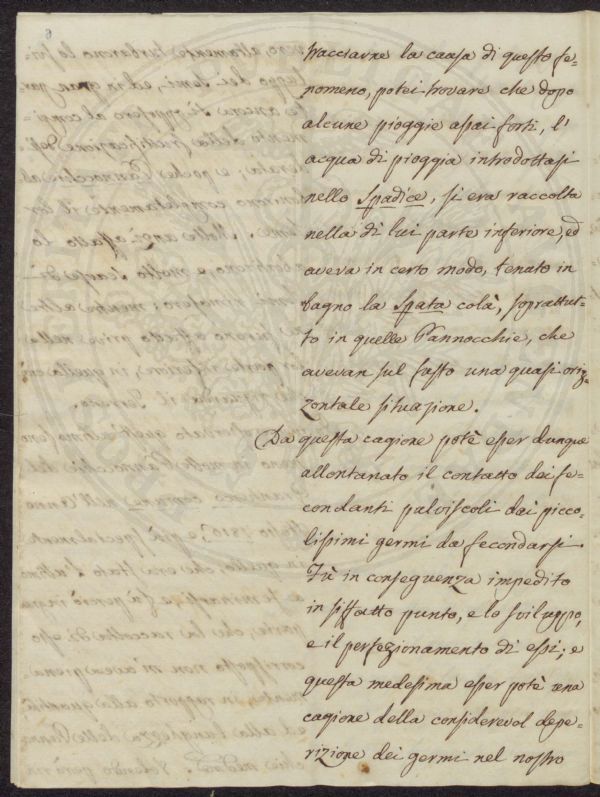 6
tracciarne la causa di questo fe=
nomeno, potei trovare che dopo
alcune pioggie assai forti, l'
acqua di pioggia introdottasi
nello Spadice, si era raccolta
nella di lui parte inferiore, ed
aveva in certo modo, tenuto in
bagno la Spata colà, soprattut=
to in quelle Pannocchie, che
avevan sul fusto una quasi oriz=
zontale situazione.
Da questa cagione potè esser dunque
allontanato il contatto dei fe=
condanti pulviscoli dai picco=
lissimi germi da fecondarsi.
Fù in conseguenza impedito
in siffatto punto, e lo sviluppo,
e il perfezionamento di essi; e
questa medesima esser potè una
cagione della considerevol depe=
rizione dei germi nel nostro